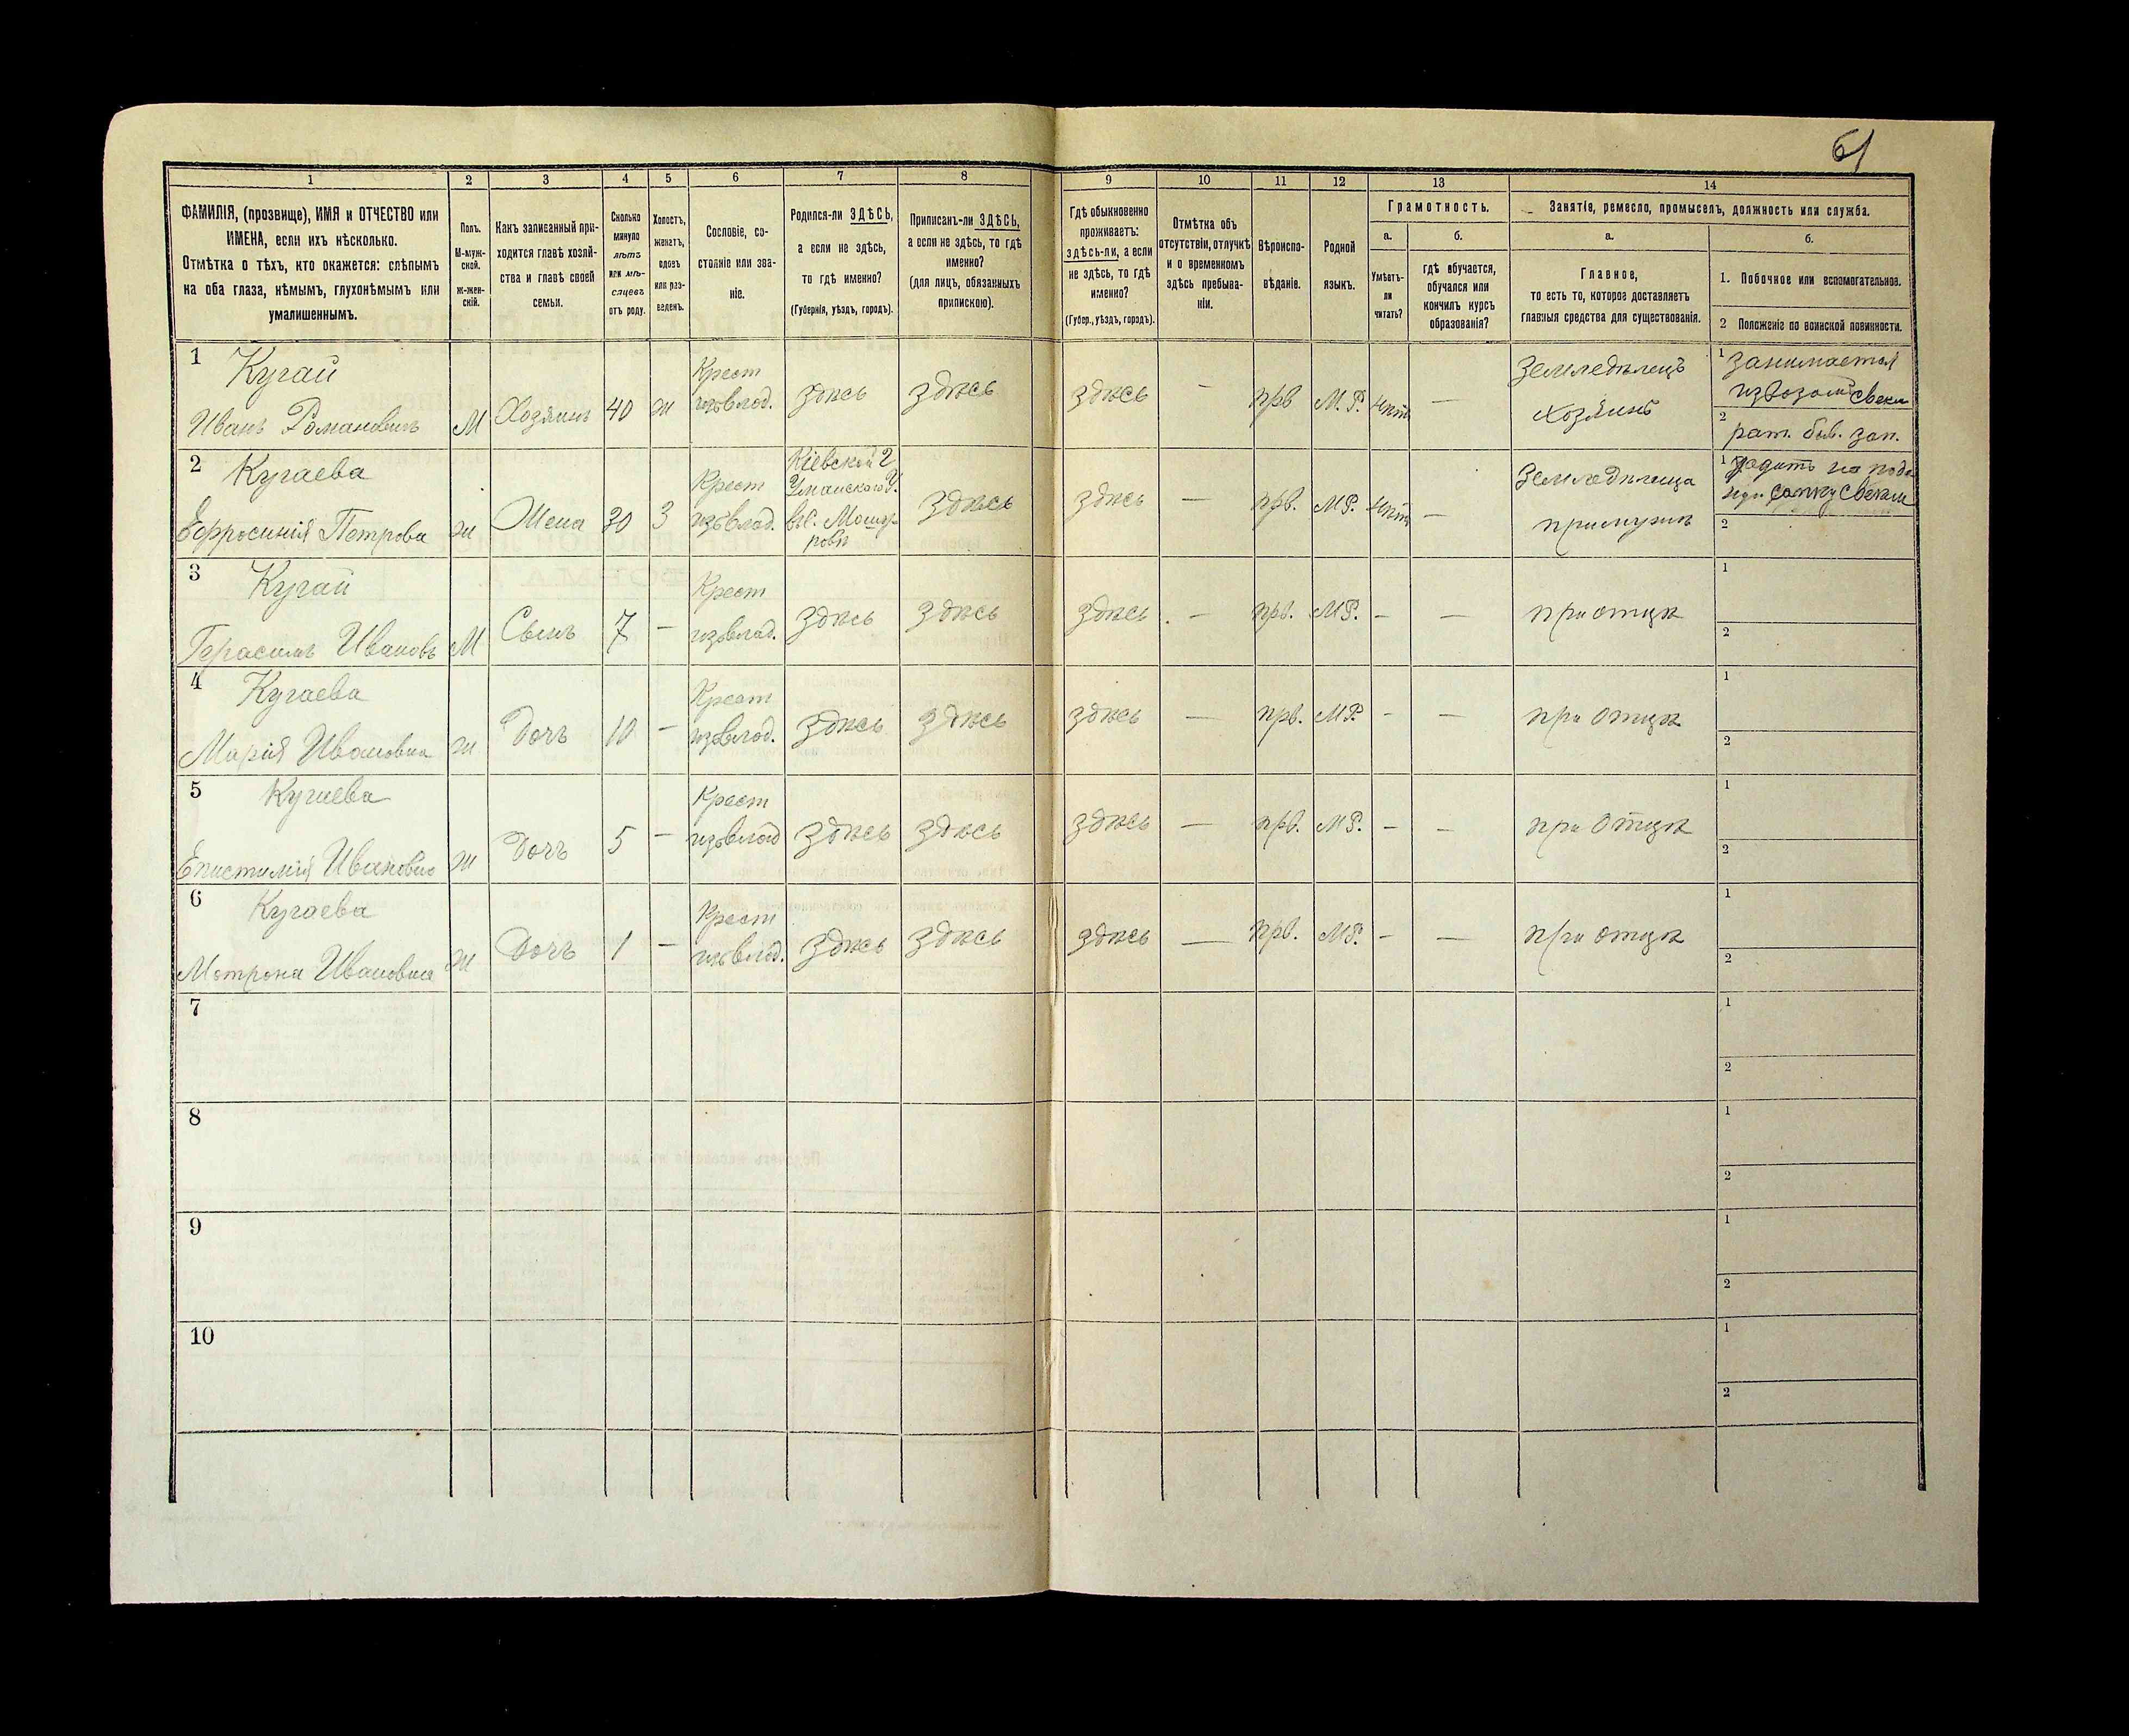 61
1
2
3
4
5
6
7
8
9
10
11
12
13
14
ФАМИЛІЯ, (прозвище), ИМЯ и ОТЧЕСТВО или
ИМЕНА, если ихъ нѣсколько.
Отмѣтка о тѣхъ, кто окажется: слѣпымъ
на оба глаза, нѣмымъ, глухонѣмымъ или
умалишеннымъ.
Полъ.
М-муж-
ской.
Ж-жен-
скій.
Какъ записанный при-
ходится главѣ хозяй-
ства и главѣ своей
семьи.
Сколько
минуло
лѣтъ
или мѣ-
сяцевъ
отъ роду.
Холостъ,
женатъ,
вдовъ
или раз-
веденъ.
Сословіе, со-
стояніе или зва-
ніе.
Родился-ли ЗДѢСЬ,
а если не здѣсь,
то гдѣ именно?
(Губернія, уѣздъ, городъ).
Приписанъ-ли ЗДѢСЬ,
а если не здѣсь, то гдѣ
именно?
(для лицъ, обязанныхъ
припискою).
Гдѣ обыкновенно
проживаетъ:
здѣсь-ли, а если
не здѣсь, то гдѣ
именно?
(Губер., уѣздъ, городъ).
Отмѣтка объ
отсутствіи, отлучкѣ
и о временномъ
здѣсь пребыва-
ніи.
Вѣроиспо-
вѣданіе.
Родной
языкъ.
Грамотность.
а.
Умѣетъ-
ли
читать?
б.
гдѣ обучается,
обучался или
кончилъ курсъ
образованія?
Занятіе, ремесло, промыселъ, должность или служба.
а.
Главное,
то есть то, которое доставляетъ
главныя средства для существованія.
б.
1. Побочное или вспомогательное.
2 Положеніе по воинской повинности.
1 Кугай
Иванъ Романовичъ
М
Хозяинъ
40
ж
Крест
изъ влад.
здѣсь
здѣсь
здѣсь
—
прв
М.Р.
Нѣтъ
—
Земледѣлецъ
хозяинъ
1 занимается
извозомъ свекл
2 рат. быв. зап.
2 Кугаева
Ефросинія Петрова
ж
Жена
30
З
Крест
изъ влад.
Кіевской г
Уманскаго у.
въ с.
здѣсь
здѣсь
—
прв.
МР.
Нѣтъ
—
Земледѣлица
при мужѣ
1 ходитъ на
сапку свеклы
2
3 Кугай
Герасимъ Ивановъ
М
Сынъ
7
—
Крест
изъ влад.
здѣсь
здѣсь
здѣсь
—
прв.
МР.
—
—
при отцѣ
1
2
4 Кугаева
Марія Ивановна
ж
Дочь
10
—
Крест
изъ влад.
здѣсь
здѣсь
здѣсь
—
прв.
МР.
—
—
при отцѣ
1
2
5 Кугаева
Епистимія Ивановна
ж
Дочь
5
—
Крест
изъ влад
здѣсь
здѣсь
здѣсь
—
прв.
МР.
—
—
при отцѣ
1
2
6 Кугаева
Мотрона Ивановна
ж
Дочь
1
—
Крест
изъ влад.
здѣсь
здѣсь
здѣсь
—
прв.
МР.
—
—
при отцѣ
1
2
7
1
2
8
1
2
9
1
2
10
1
2